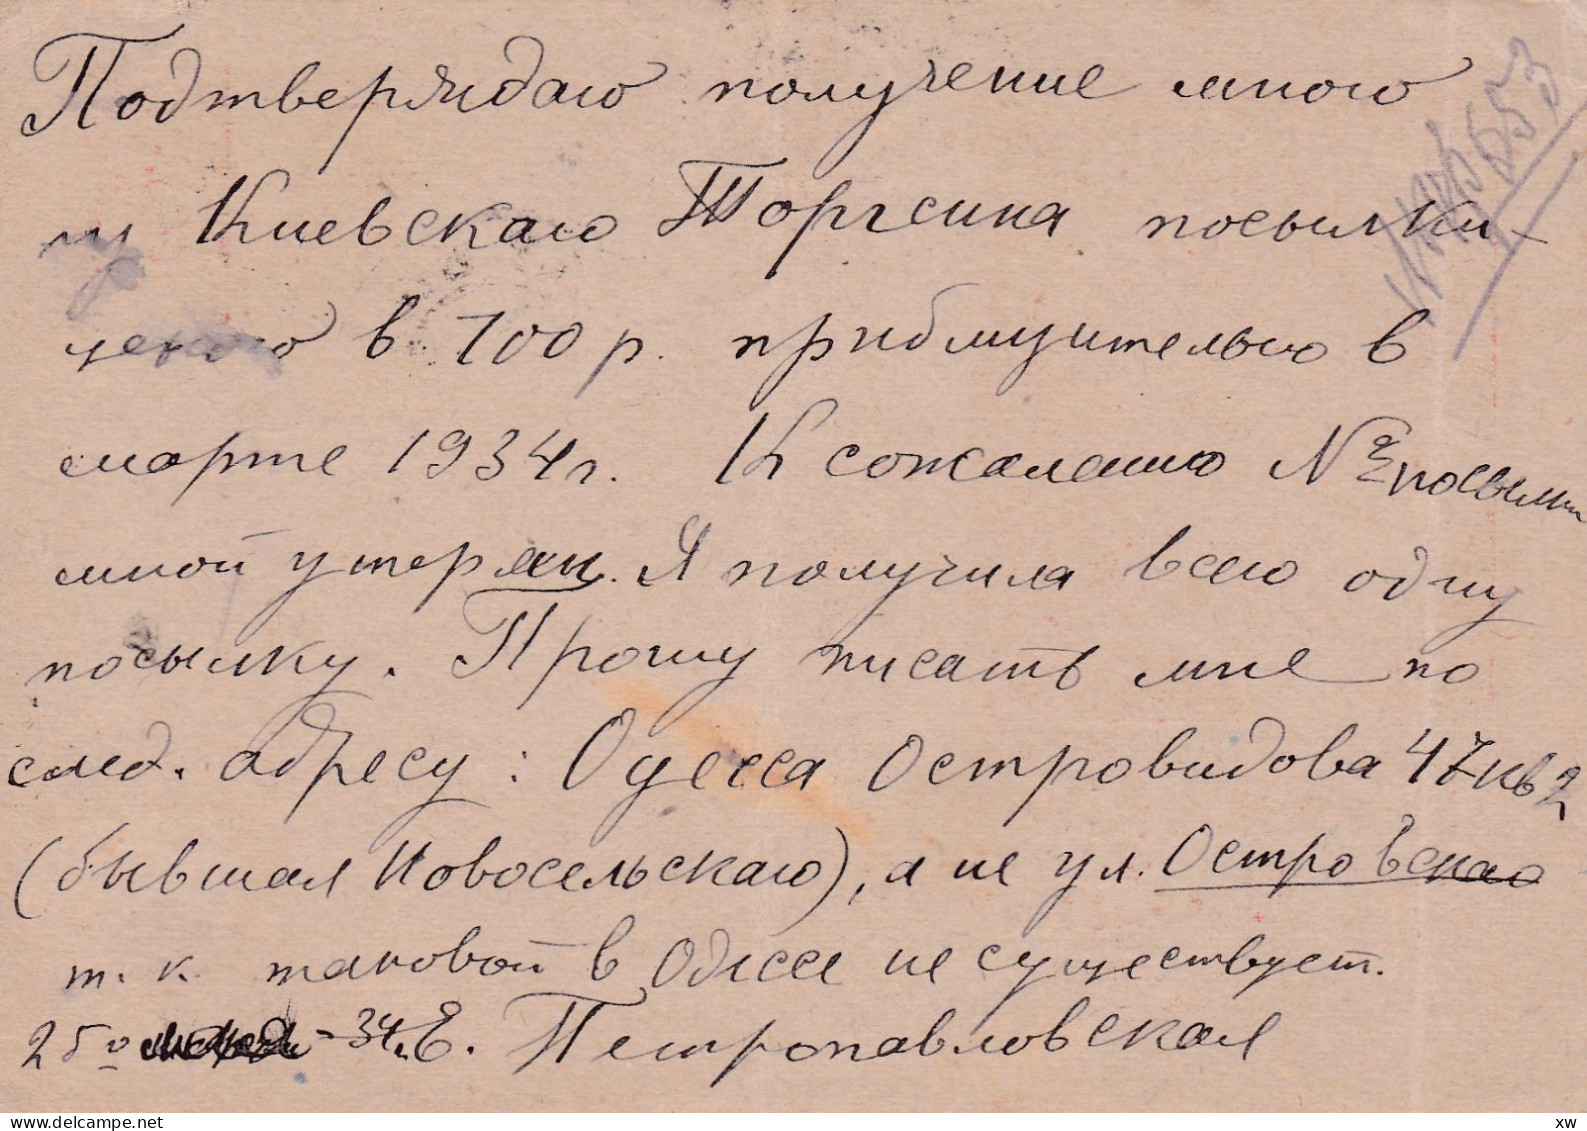 Подтверждаю получение мною
из Киевскаго Торгсина посылки -
ценою в 100 р. приблизительно в
марте 1934 г. К сожалению № посылки
мной утерян. Я получила всего одну
посылку. Прошу писать мне по
след. адресу: Одесса Островидова 47 кв 2
(бывшая Новосельскаго), а не ул. Островскаго
т. к. таковой в Одессе не существует.
25го -34 г. Е. Петропавловская
delcampe.net
xw